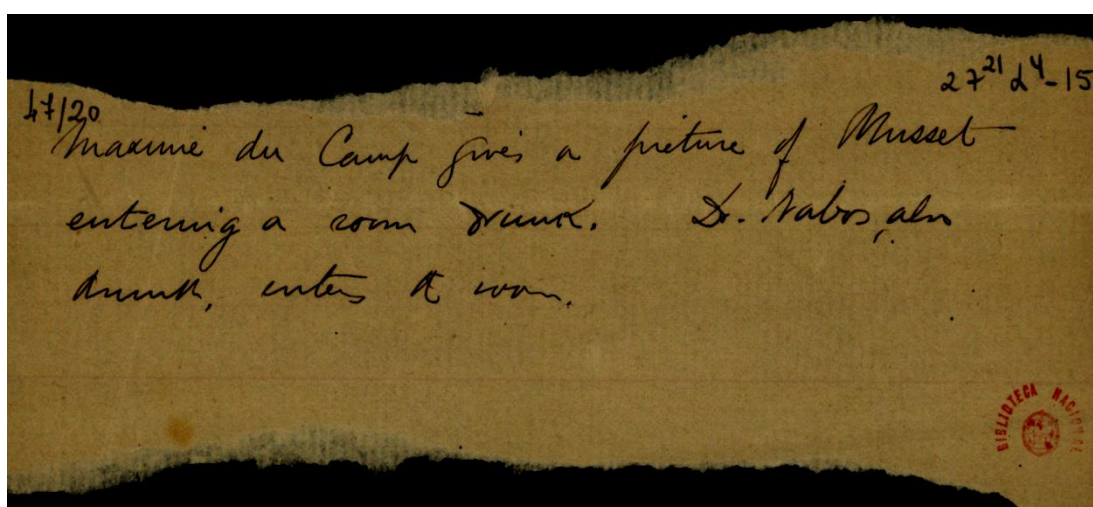 47/20
27²¹ d⁴-15
Maxime du Camp gives a picture of Musset
entering a room drunk. Dr. Nabos, also
drunk, enters the room.
BIBLIOTECA NACIONAL